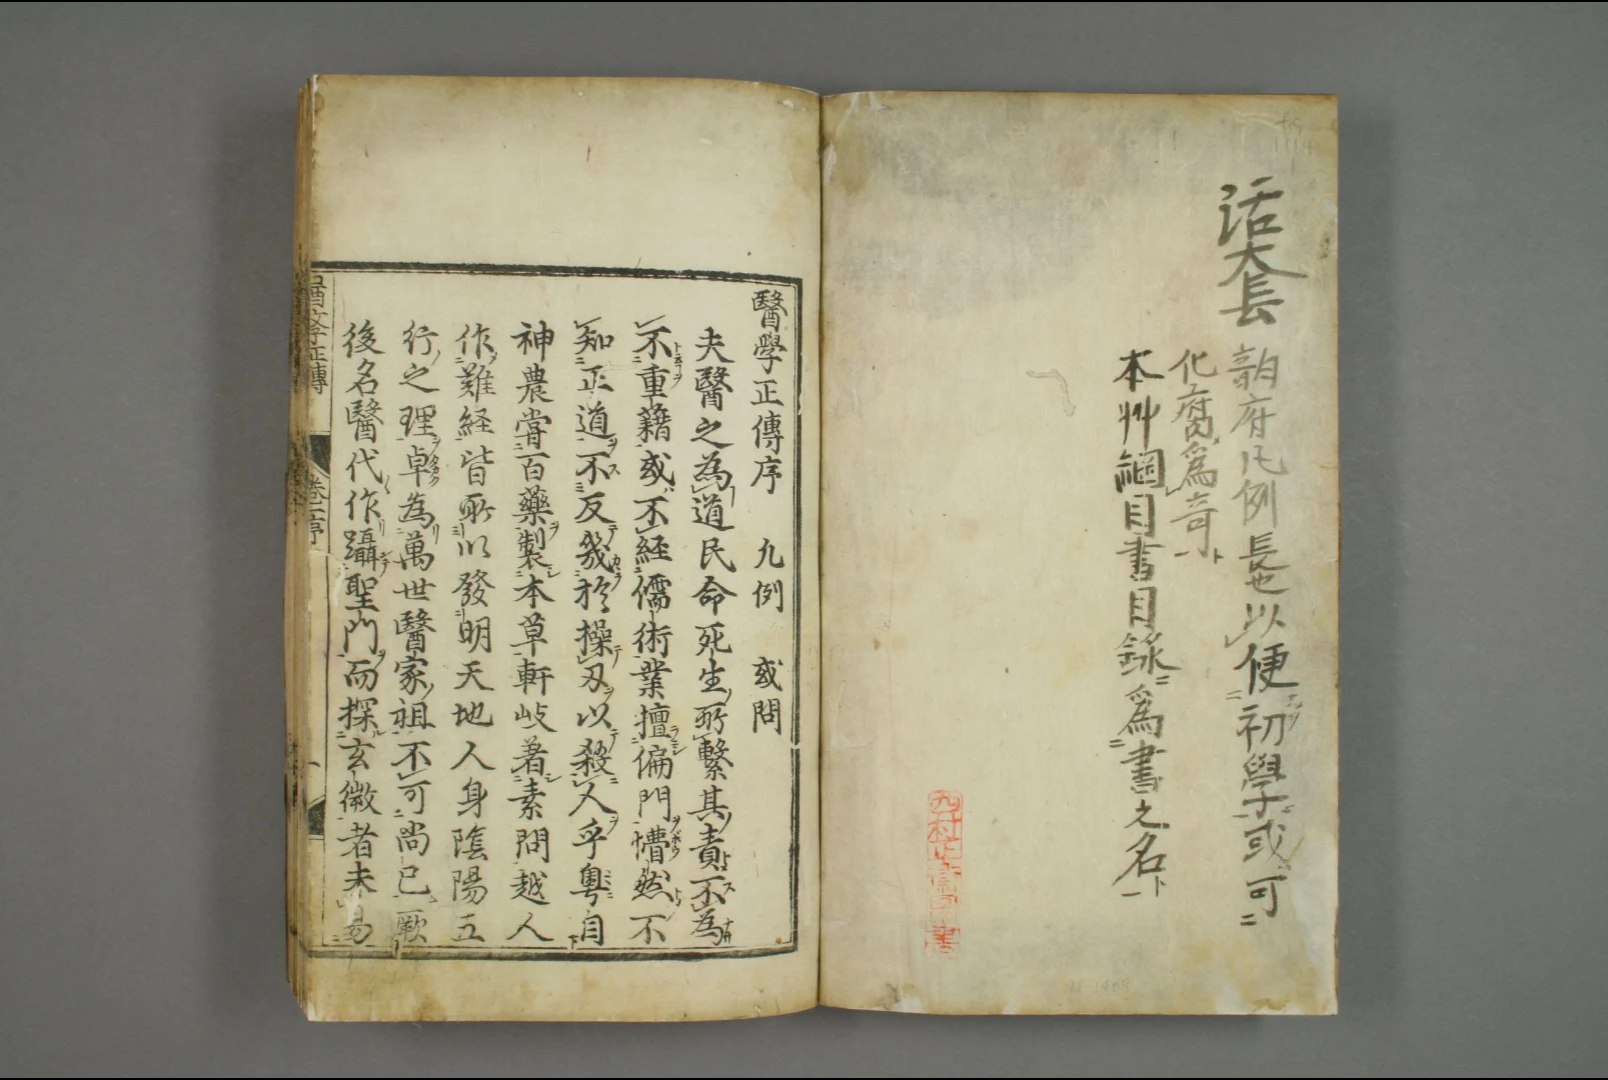 活套
韵府凡例長也以便初学或可
化腐為奇ト
本艸綱目書目録為書之名ト
醫學正傳序 凢例 或問
夫醫之為道民命死生所繫其責不為
不重籍或不經儒術業擅偏門懵然不
知正道不反幾於操刃以殺人乎粤自
神農甞百藥製本草軒岐著素問越人
作難経皆所以發明天地人身陰陽五
行之理卓為萬世醫家祖不可尚已厥
後名醫代作躡聖門而探玄微者未易
醫学正傳 卷一序 一